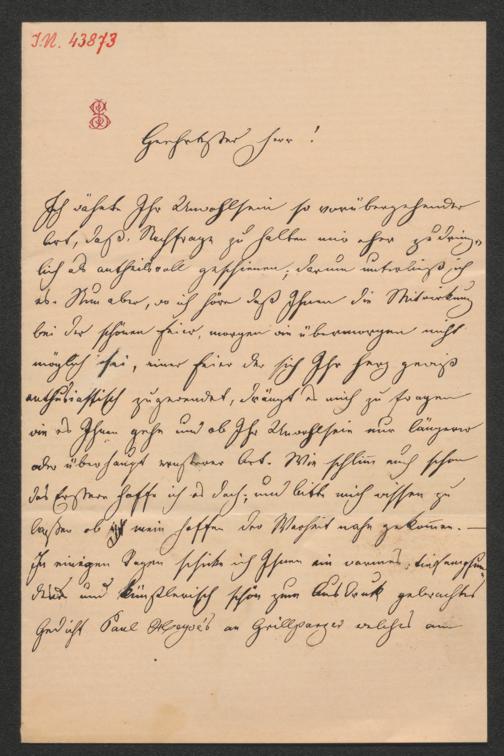 I.N. 43873
Geehrtester Herr!
Ich wähnte Ihr Unwohlsein so vorübergehender
Art, daß Nachfrage zu halten mir eher zudring-
lich als antheilvoll geschienen; darum unterließ ich
es. Nun aber, wo ich höre daß Ihnen die Mitwirkung
bei der schönen Feier, morgen wie übermorgen nicht
möglich sei, einer Feier der sich Ihr Herz gewiß
enthusiastisch zugewendet, drängt es mich zu fragen
wie es Ihnen gehe und ob Ihr Unwohlsein nur längerer
oder überhaupt ernsterer Art. Wie schlimm auch schon
das Erstere hoffe ich es doch; und bitte mich wissen zu
laßen ob mein hoffen der Warheit nahe gekommen. —
In einigen Tagen schicke ich Ihnen ein warmes, tiefempfun-
denes und künstlerisch schön zum Ausdruck gebrachtes
Gedicht Paul Heyse's an Grillparzer welches am